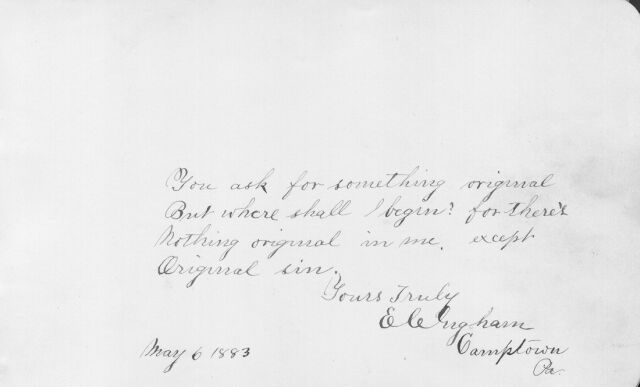 You ask for something original
But where shall I begin? for there's
Nothing original in me. except
Original sin.
Yours Truly
E C Ingham
Camptown
Pa.
May 6 1883